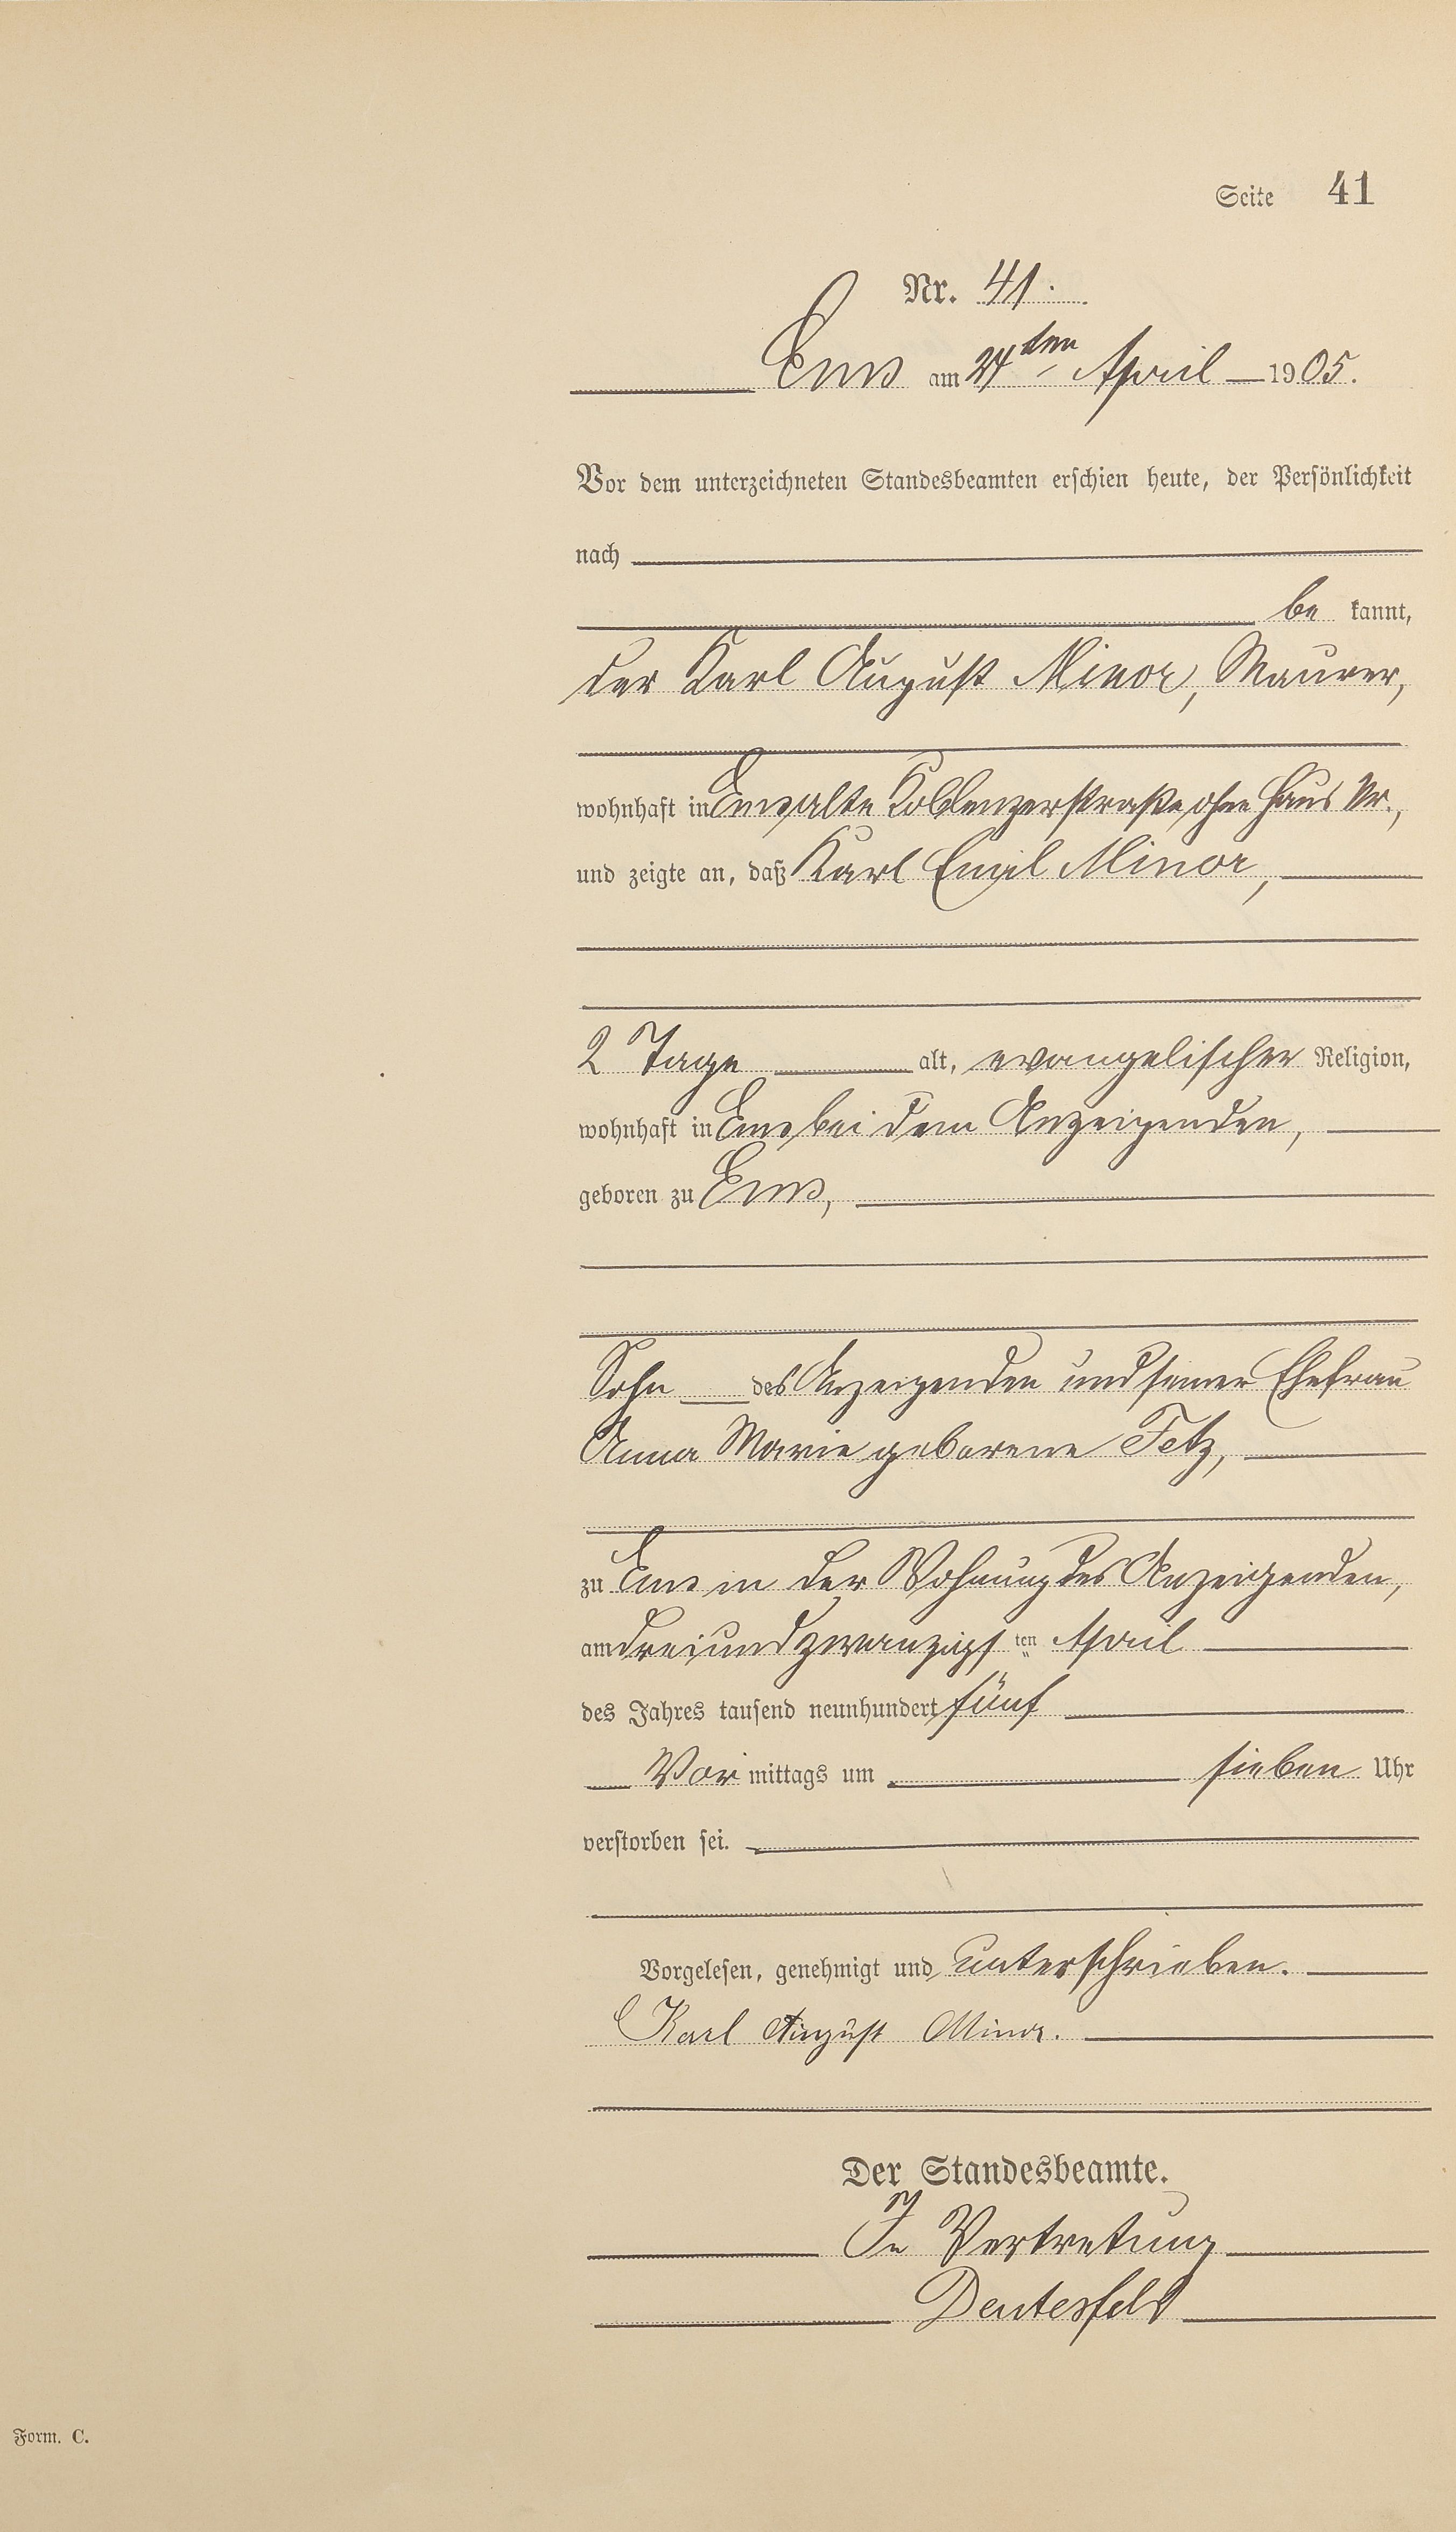 Seite 41
Nr. 41.
Ems am 24ten April 1905.
Vor dem unterzeichneten Standesbeamten erschien heute, der Persönlichkeit
nach
be kannt,
der Karl August Minor, Maurer,
wohnhaft in Ems, alte Koblenzerstraße ohne Haus Nr.,
und zeigte an, daß Karl Emil Minor,
2 Tage alt, evangelischer Religion,
wohnhaft in Ems bei dem Anzeigenden,
geboren zu Ems,
Sohn des Anzeigenden und seiner Ehefrau
Anna Marie geborene Fetz,
zu Ems in der Wohnung des Anzeigenden,
am dreiundzwanzigsten April
des Jahres tausend neunhundert fünf
Vor mittags um sieben Uhr
verstorben sei.
Vorgelesen, genehmigt und unterschrieben.
Karl August Minor.
Der Standesbeamte.
In Vertretung
Deutesfeld
Form. C.